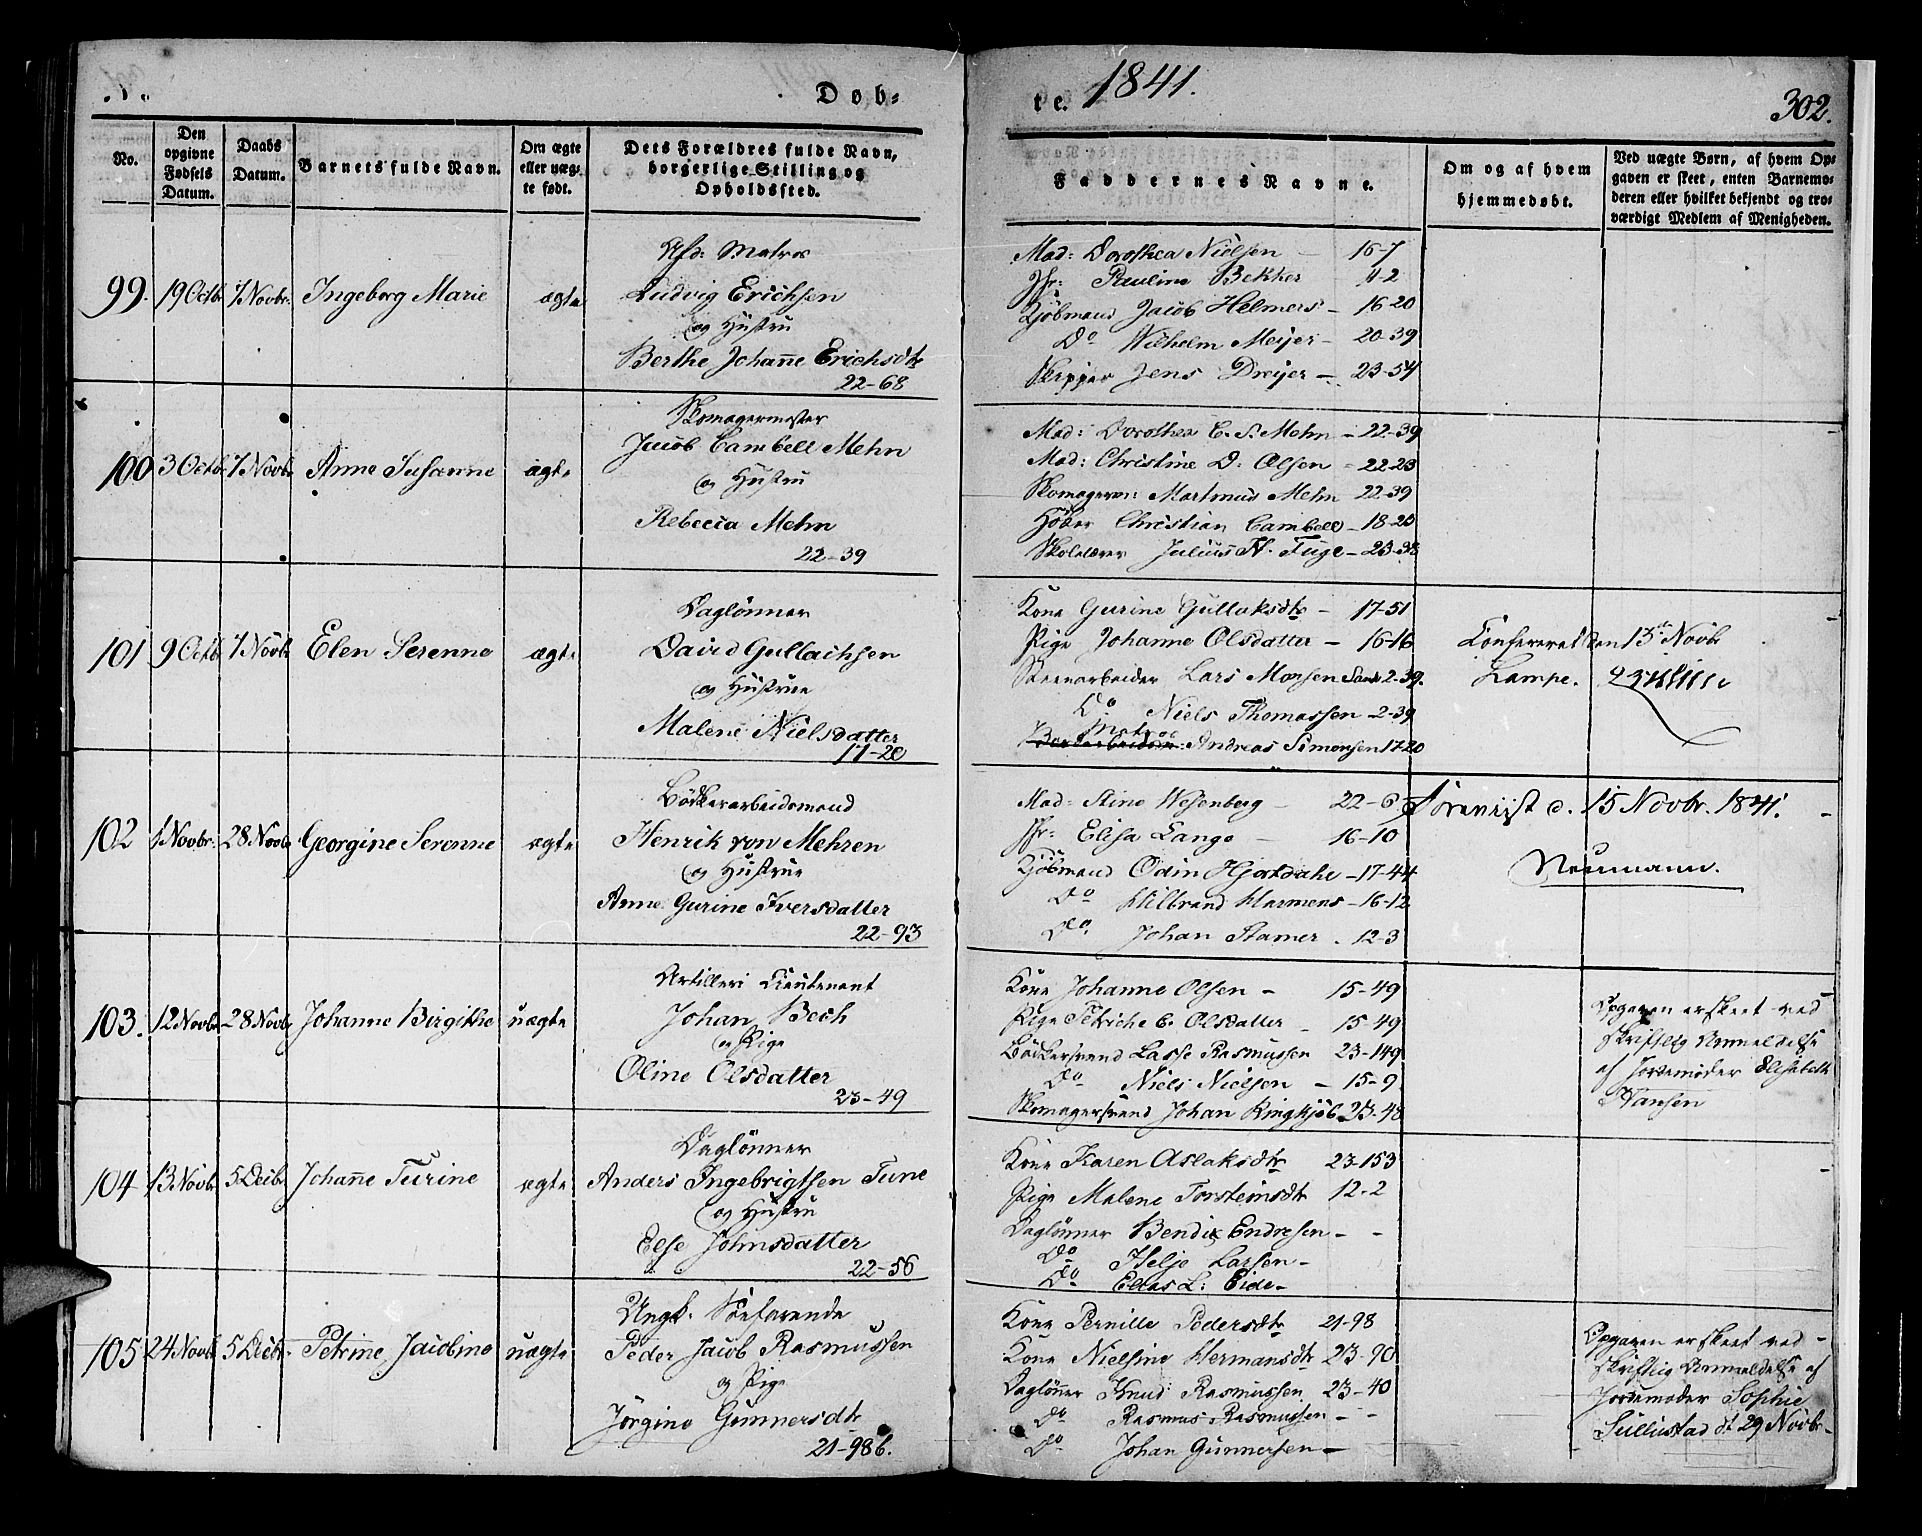 Døb-
te. 1841.
302.
No.
Den opgivne Fødsels Datum.
Daabs Datum.
Barnets fulde Navn.
Om ægte eller uægte født.
Dets Forældres fulde Navn, borgerlige Stilling og Opholdssted.
Faddernes Navne.
Om og af hvem hjemmedøbt.
Ved uægte Børn, af hvem Opgaven er skeet, enten Barnemoderen eller hvilket bekjendt og troværdigt Medlem af Menigheden.
99. 19 Octbr 7 Novbr. Ingeborg Marie ægte
Afsk: Matros
Ludvig Erichsen
og Hustru
Berthe Johanne Erichsdtr
22-68
Mad: Dorothea Nielsen - 16-7
Jfr: Pauline Bekker 4-2
Kjöbmand Jacob Helmers - 16-20
Do Wilhelm Meijer - 20-39
Skipper Jens Dreijer - 23-54
100 3 Octbr 7 Novbr Anne Susanne ægte
Skomagermester
Jacob Cambell Mehn
og Hustru
Rebecca Mehn
22-39
Mad: Dorothea C. S. Mehn - 22-39
Mad: Christine D: Olsen - 22-23
Skomagersv: Martinus Mehn 22-39
Höker Christian Cambell - 18-23
Skolelærer Julius F. Fuge - 23-38
101 9 Octbr 7 Novbr Elen Serenne ægte
Daglönner
David Gullachsen
og Hustrue
Malene Nielsdatter
17-20
Kone Gurine Gullaksdtr - 17-51
Pige Johanne Olsdatter - 16-16
Steenarbeider Lars Monsen Sand 2-39.
Do Niels Thomassen - 2-39
Matros
Andreas Simonsen 17-20
Confereret den 13de Novb
Lampe.
102 1 Novbr: 28 Novb Georgine Serenne ægte
Bödkerarbeidsmand
Henrik von Mehren
og Hustrue
Anne Gurine Iversdatter
22-93
Mad: Stine Wesenberg - 22-6
Jfr: Elisa Lange - 16-10
Kjöbmand Odin Hjortdahl - 17-44
Do Hilbrand Harmens - 16-12
Do Johan Stamer. 12-3
Foreviist d. 15 Novbr. 1841.
Neumann.
103. 12 Novbr 28 Novb Johanne Birgithe uægte
Artilleri Lieutenant
Johan Bech
og Pige
Oline Olsdatter
23-49
Kone Johanne Olsen - 15-49
Pige Petriche C. Olsdatter - 15-49
Bödkersvend Lasse Rasmussen 23-149
Do Niels Nielsen - 15-9
Skomagersvend Johan Ringkjöb 23-48
Opgaven er skeet ved
skriftlig Anmeldelse
af Jordemoder Elisabeth
Hansen
104 13 Novbr 5 Decbr Johanne Turine ægte
Daglönner
Anders Ingebrigtsen Tune
og Hustru
Else Johnsdatter
22-56
Kone Karen Aslaksdtr 23-153
Pige Malene Torsteinsdtr 12-2
Daglönner Bendix Endresen - -
Do Helje Larsen -
Do Elias L: Eide -
105 24 Novbr 5 Decbr Petrine Jacobine uægte
Ungk. Söefarende
Peder Jacob Rasmussen
og Pige
Jörgine Gunnersdtr
21-98 b.
Kone Pernille Pedersdtr 21-98
Kone Nielsine Hermansdtr 23-90
Daglönner Knud Rasmussen 23-40
Do Rasmus Rasmussen - -
Do Johan Gunnersen -
Opgaven er skeet ved
skriftlig Anmeldelse af
Jordemoder Sophie
Sillustad dt 29 Novbr.